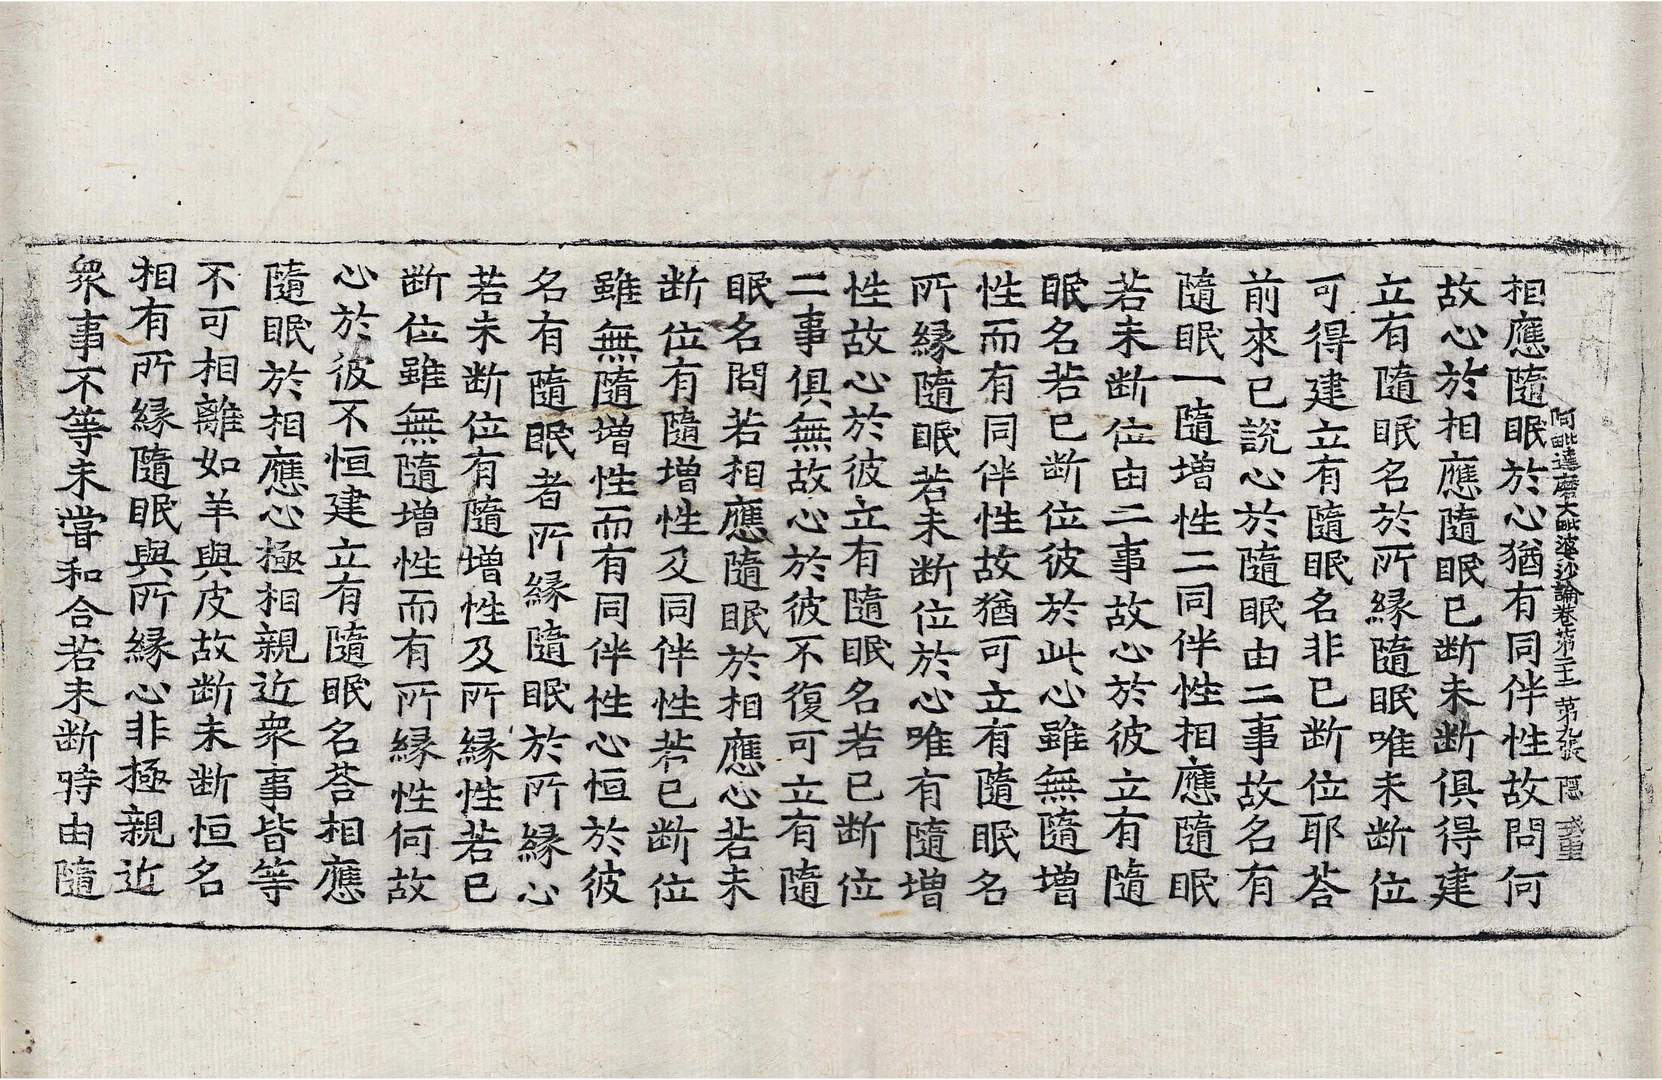 阿毗達磨大毗婆沙論卷第 第九張 隱
相應隨眠於心猶有同伴性故問何
故心於相應隨眠已断未断俱得建
立有隨眠名於所縁隨眠唯未断位
可得建立有隨眠名非已断位耶荅
前來已說心於隨眠由二事故名有
隨眠一隨増性二同伴性相應隨眠
若未断位由二事故心於彼立有隨
眠名若已断位彼於此心雖無隨増
性而有同伴性故猶可立有隨眠名
所縁隨眠若未断位於心唯有隨増
性故心於彼立有隨眠名若已断位
二事俱無故心於彼不復可立有隨
眠名問若相應隨眠於相應心若未
断位有隨増性及同伴性若已断位
雖無隨増性而有同伴性心恒於彼
名有隨眠者所縁隨眠於所縁心
若未断位有隨増性及所縁性若已
断位雖無隨増性而有所縁性何故
心於彼不恒建立有隨眠名荅相應
隨眠於相應心極相親近衆事皆等
不可相離如羊與皮故断未断恒名
相有所縁隨眠與所縁心非極親近
衆事不等未嘗和合若未断時由隨